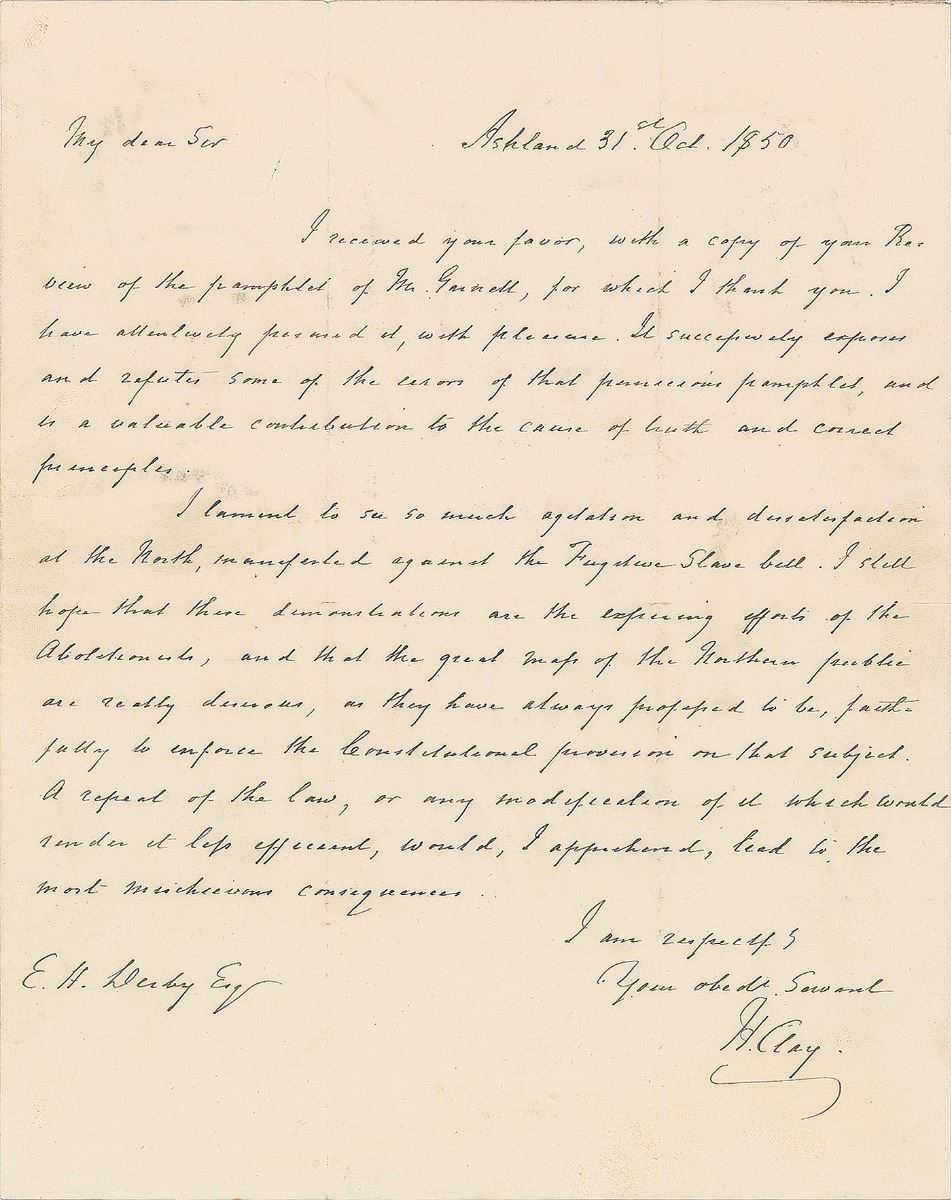 My dear Sir Ashland 31st. Oct. 1850
I received your favor, with a copy of your Re-
view of the pamphlet of Mr. Garnett, for which I thank you. I
have attentively perused it, with pleasure. It successively exposes
and refutes some of the errors of that pernicious pamphlet, and
is a valuable contribution to the cause of truth and correct
principles.
I lament to see so much agitation and dissatisfaction
at the North, manifested against the Fugitive Slave bill. I still
hope that these demonstrations are the expiring efforts of the
Abolitionists, and that the great mass of the Northern public
are really desirous, as they have always professed to be, faith-
fully to enforce the Constitutional provision on that subject.
A repeal of the law, or any modification of it which would
render it less efficient, would, I apprehend, lead to the
most mischievous consequences.
I am respectfy
Your obedt. Servant
E. H. Derby Esq
H. Clay.